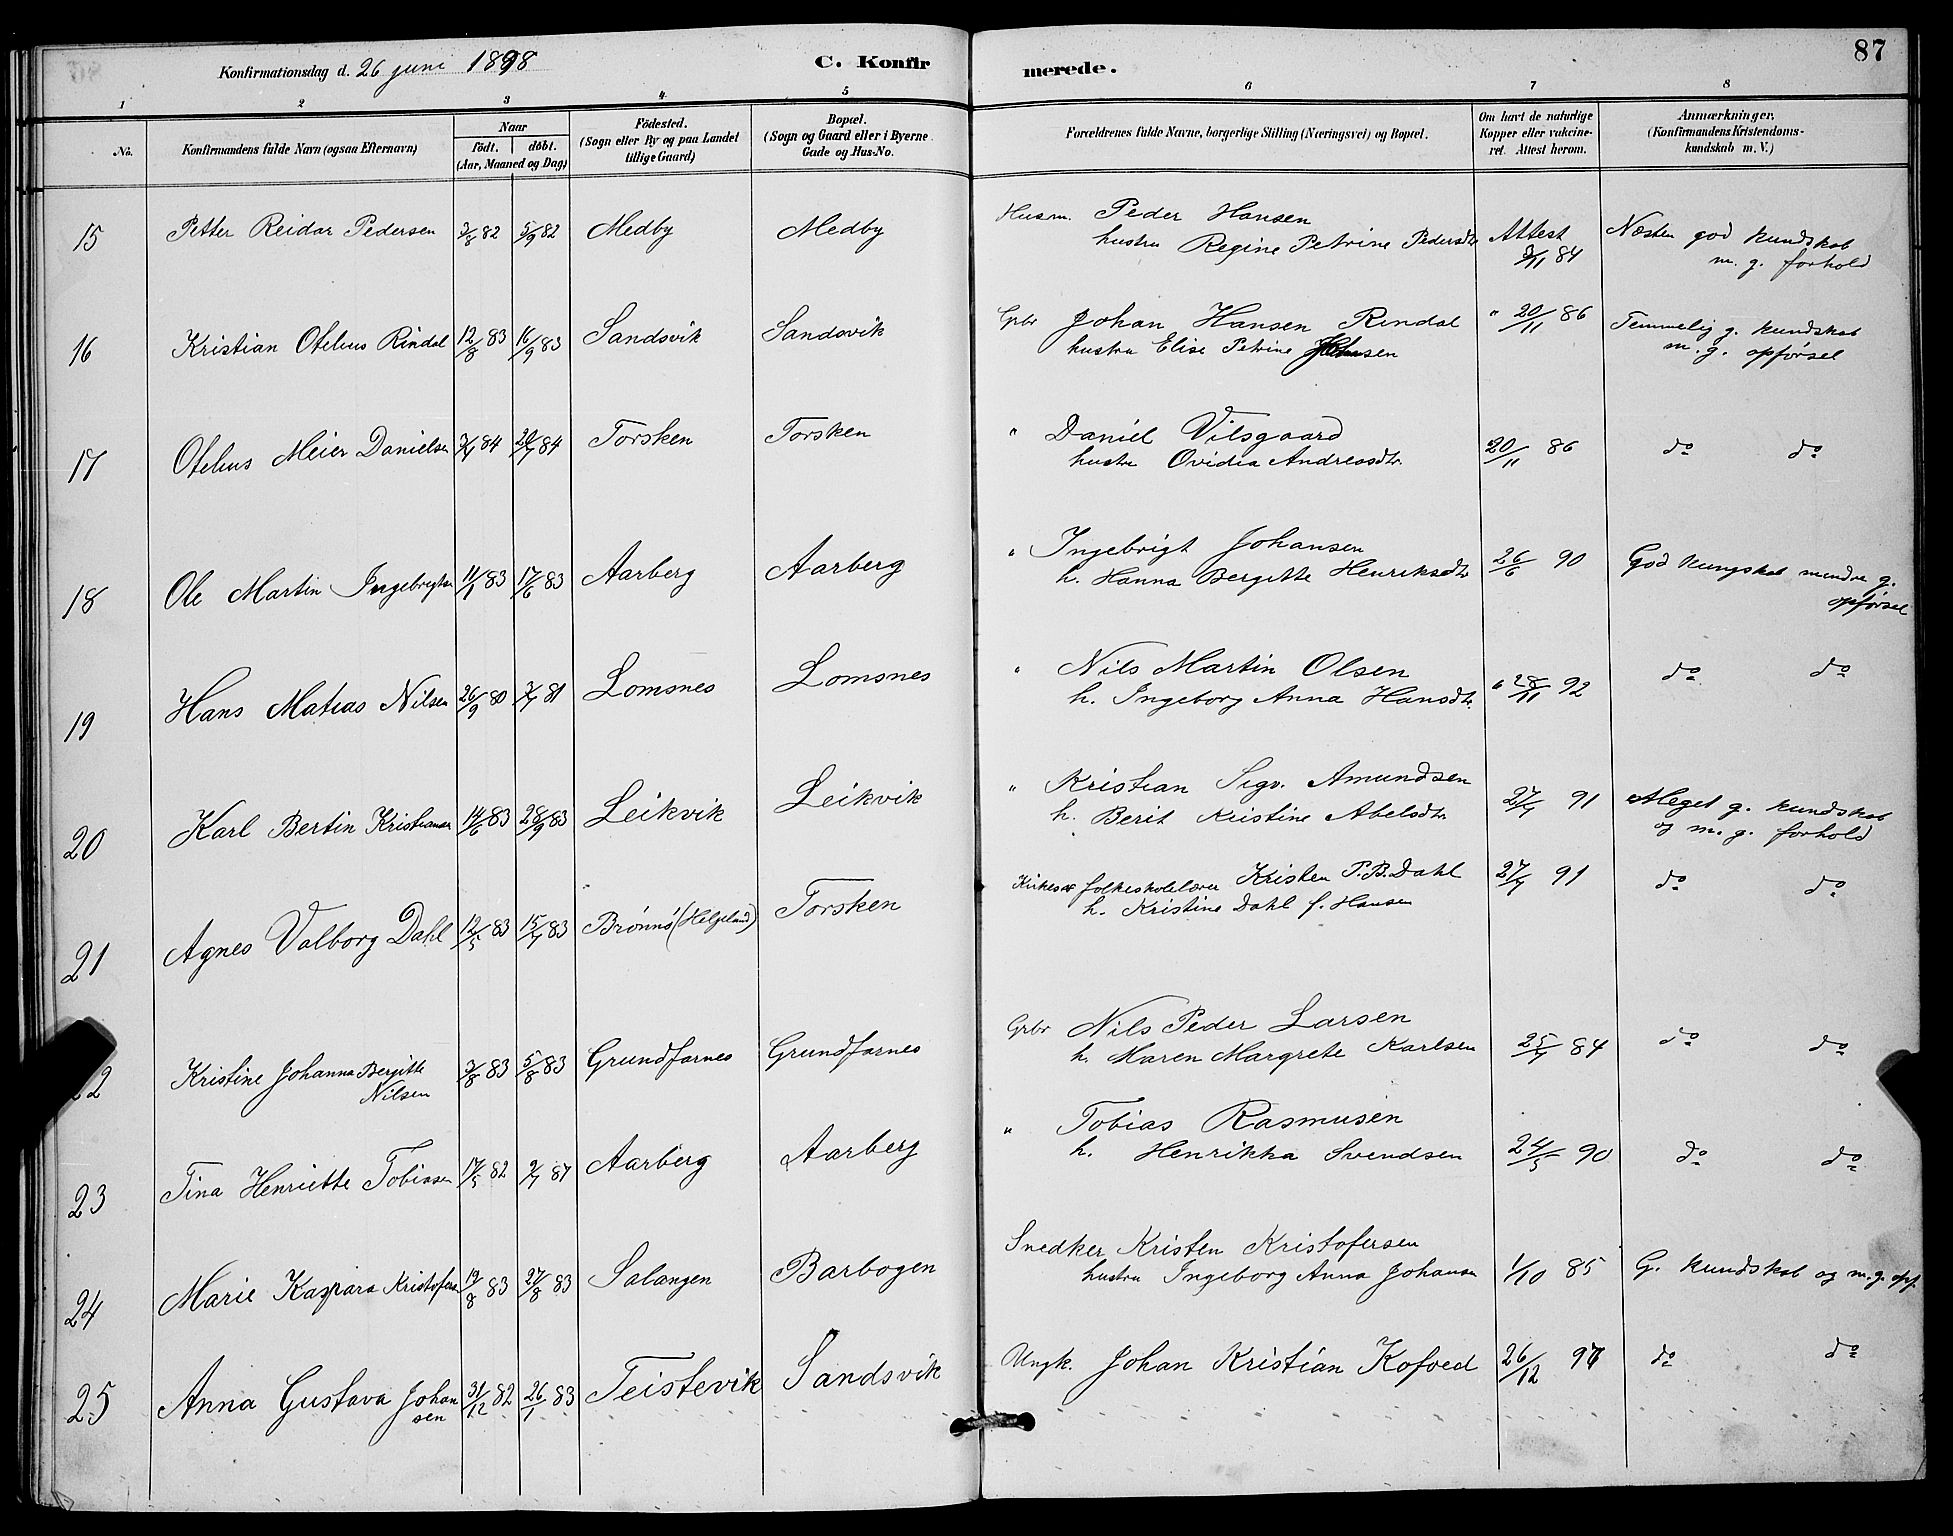 Konfirmationsdag d. 26 juni 1898
C. Konfirmerede.
87
1 2 3 4 5 6 7 8
No.
Konfirmandens fulde Navn (ogsaa Efternavn)
Naar
födt. döbt.
(Aar, Maaned og Dag)
Födested.
(Sogn eller By og paa Landet
tillige Gaard)
Bopæl.
(Sogn og Gaard eller i Byerne
Gade og Hus-No.
Forældrenes fulde Navne, borgerlige Stilling (Næringsvei) og Bopæl.
Om havt de naturlige
Kopper eller vakcine-
ret. Attest herom.
Anmærkninger.
(Konfirmandens Kristendoms-
kundskab m. V.)
15 Petter Reidar Pedersen 3/8 82 5/9 82 Medby Medby
Husm. Peder Hansen
hustru Regine Petrine Pedersdtr
Attest
3/11 84
Næsten god kundskab
m. g. forhold
16 Kristian Otelius Rindal 12/8 83 16/9 83 Sandsvik Sandsvik
Grbr Johan Hansen Rindal
hustru Elise Petrine
" 20/11 86
Temmelig g. kundskab
m. g. opførsel
17 Otelius Meier Danielsen 84 84 Torsken Torsken
" Daniel Vilsgaard
hustru Ovidia Andreasdtr.
20/11 86
do do
18 Ole Martin Ingebrigtsen 83 17/6 83 Aarberg Aarberg
" Ingebrigt Johansen
h. Hanna Bergitte Henriksdtr
26/6 90
God kungskab mindre g.
opførsel
19 Hans Matias Nilsen 26/9 80 81 Lomsnes Lomsnes
" Nils Martin Olsen
h. Ingeborg Anna Hansdtr.
" 28/11 92
do do
20 Karl Bertin Kristiansen 14/6 83 28/9 83 Leikvik Leikvik
" Kristian Sigv. Amundsen
h. Berit Kristine Abelsdtr
27/7 91
Meget g. kundskab
og m. g. forhold
21 Agnes Valborg Dahl 12/5 83 15/7 83 Brönnö (Helgeland) Torsken
Kirkes. og folkeskolelærer Kristen P. B. Dahl
h. Kristine Dahl f. Hansen
27/7 91
do do
22 Kristine Johanna Bergitte
Nilsen
3/8 83 5/8 83 Grundfarnes Grundfarnes
Grbr Nils Peder Larsen
h. Maren Margrete Karlsen
25/7 84
do do
23 Tina Henriette Tobiasen 17/5 82 9/7 87 Aarberg Aarberg
" Tobias Rasmusen
h. Henrikka Svendsen
24/5 90
do do
24 Marie Kaspara Kristofersen 19/8 83 27/8 83 Salangen Barbogen
Snedker Kristen Kristofersen
hustru Ingeborg Anna Johansen
1/10 85
G. kundskab og m. g. opf.
25 Anna Gustava Johan
sen
31/12 82 26/1 83 Teistevik Sandsvik
Ungk. Johan Kristian Kofoed
26/12 97
do do